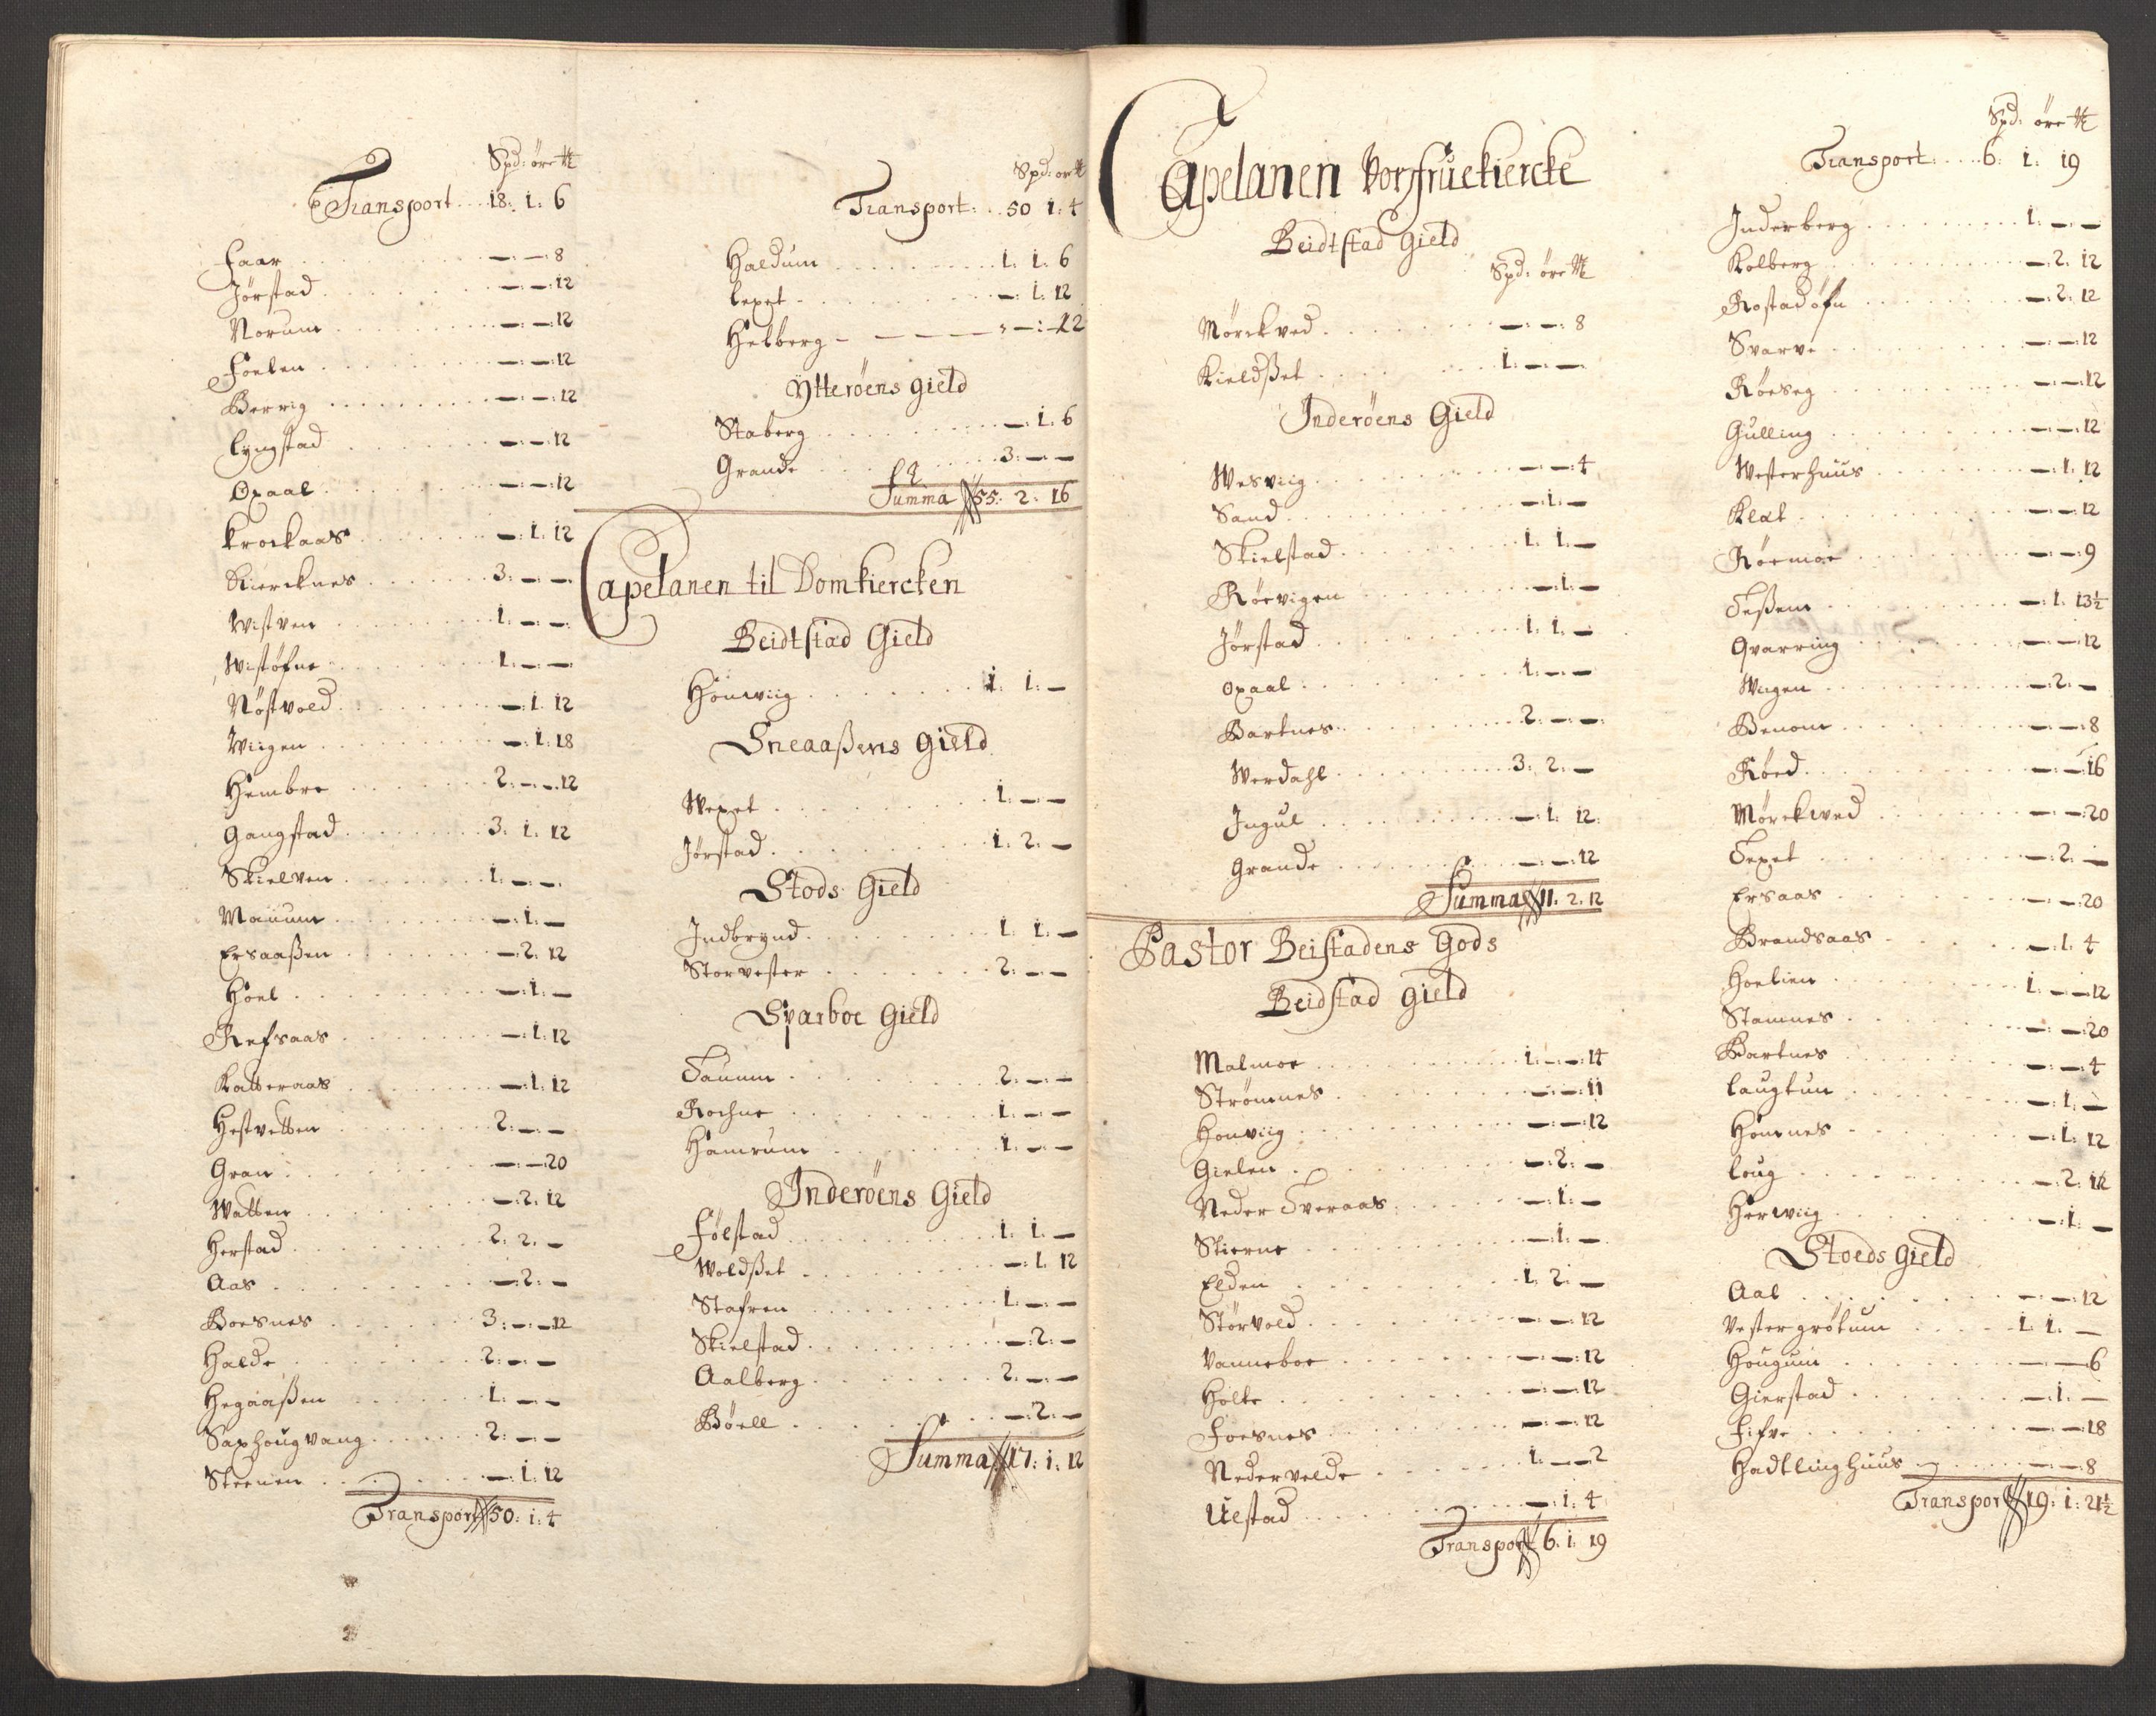 Spd: öre ℔
Transport . . 18: 1: 6
Faar . . . — — 8
Jørstad . . . — — 12
Norum . . . — — 12
Foelen . . . — — 12
Berrig . . . — — 12
Lyngstad . . . — — 12
Opaal . . . — — 12
Krockaas . . . — 1: 12
Kiercknes . . . 3: — —
Wistven . . . 1: — —
Wistøfne . . . 1: — —
Nøstvold . . . — 1: 12
Wiigen . . . — 1: 18
Hembre . . . 2: — 12
Gangstad . . . 3: 1: 12
Skielven . . . 1: — —
Mauum . . . — 1: —
Ersaaßen . . . — 2: 12
Hoel . . . — 1: —
Refsaas . . . — 1: 12
Katteraas . . . — 1: 12
Hestvetten . . . 2: — —
Gran . . . — — 20
Watten . . . — 2: 12
Herstad . . . 2: 2: —
Aas . . . — 2: —
Boesnes . . . 3: — 12
Halde . . . 2: — —
Hegaaßen . . . 1: — —
Saxhougvang . . . 2: — —
Steenen . . . — 1: 12
Transport 50: 1: 4
Spd: ör ℔
Transport: . . 50 1: 4
Haldum . . . 1: 1: 6
Lexet . . . — 1: 12
Helberg . . . — — 12
Ytterøens Gield
Staberg . . . — 1: 6
Grande . . . 3: — —
Summa 55: 2: 16
Capelanen til Domkiercken
Beidtstad Gield
Honwiig . . . 1: 1: —
Sneaaßens Gield
Wexet . . . 1: — —
Jørstad . . . 1: 2: —
Stods Gield
Indbrynd . . . 1: 1: —
Storvester . . . 2: — —
Sparboe Gield
Tauum . . . 2: — —
Rochne . . . 1: — —
Hamrum . . . 1: — —
Inderöens Gield
Følstad . . . 1: 1: —
Woldßet . . . — 1: 12
Stafren . . . 1: — —
Skielstad . . . — 2: —
Aalberg . . . 2: — —
Bøell . . . — 2: —
Summa 17: 1: 12
Capelanen Vorfruekiercke
Beidtstad Gield
Spd: öre ℔
Mørckved . . . — — 8
Kieldßet . . . 1: — —
Inderöens Gield
Wesviig . . . — — 4
Sand . . . — 1: —
Skielstad . . . 1: 1: —
Røevigen . . . — 1: —
Jørstad . . . 1: 1: —
Opaal . . . 1: — —
Bartnes . . . 2: — —
Werdahl . . . 3: 2: —
Ingul . . . — 1: 12:
Grande . . . — — 12
Summa 11: 2: 12
Pastor Beistadens Gods
Beidstad Gield
Malmoe . . . 1: — 14
Strømnes . . . — — 11
Honviig . . . — — 12
Gielen . . . — 2: —
Neder Tveraas . . . — 1: —
Stierne . . . — 1: —
Elden . . . 1: 2: —
Størvold . . . — — 12
Vanneboe . . . — — 12
Holte . . . — — 12
Foesnes . . . — — 12
Nedervelde . . . 1: — 2
Uestad . . . — 1: 4
Transport 6: 1: 19
Spd: öre ℔
Transport: . . . 6: 1: 19
Inderberg . . . 1: — —
Kolberg . . . — 2: 12
Rostadøfn . . . — 2: 12
Svarve . . . — — 12
Røeseg . . . — — 12
Gulling . . . — — 12
Westerhuus . . . — 1: 12
Klet . . . — — 12
Røemoe . . . — — 9
Teßem . . . — 1: 13½
Qvarving . . . — — 12
Wiigen . . . — 2: —
Benom . . . — — 8
Røed . . . — — 16
Mørckwed . . . — — 20
Texet . . . — 2: —
Ersaas . . . — — 20
Brandsaas . . . — 1: 4
Hoelien . . . 1: — 12
Stamnes . . . — — 20
Bartnes . . . — — 4
Laugtun . . . — 1: —
Homnes . . . — 1: 12
Loug . . . — 2: 12
Herwiig . . . — 1: —
Stoeds Gield
Aal . . . — — 12
Vestergrøtum . . . 1: 1: —
Hougum . . . — — 6
Gierstad . . . — 1: —
Fifve . . . — — 18
Hadtlinghuus . . . — — 8
Transport 19: 1: 21½